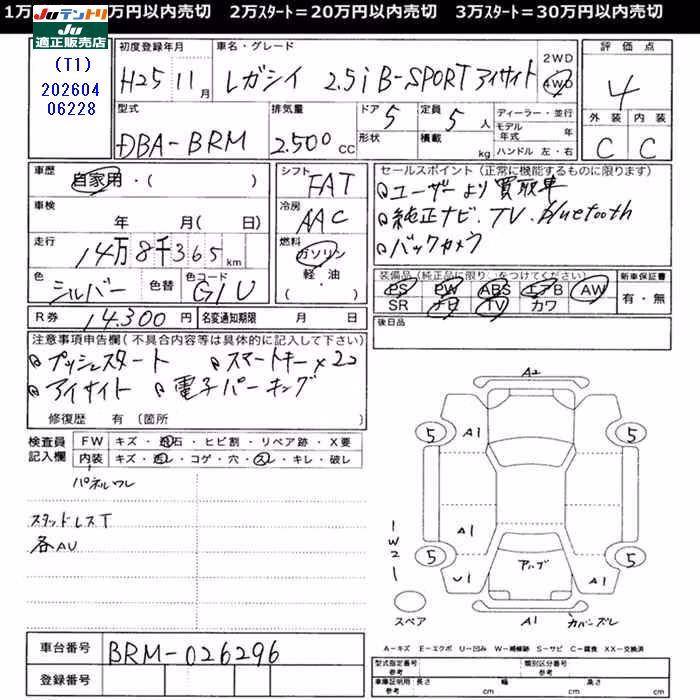 1万 万円以内売切 2万スタート＝20万円以内売切 3万スタート＝30万円以内売切
Juテントリ
Ju
適正販売店
(T1)
202604
06228
初度登録年月 車名・グレード 2WD 4WD
H25 11月 レガシイ 2.5i B-SPORT アイサイト
評価点
4
外装 内装
C C
型式 排気量 ドア 5 定員 5人 ディーラー・並行
形状 積載 kg モデル年式 年
ハンドル 左・右
DBA-BRM 2.500CC
車歴 自家用・( )
シフト FAT
車検 年 月( 日)
冷房 AAC
走行 14万8千365km
燃料 ガソリン 軽・油 ・( )
色 シルバー 色替 色コード G1U
R券 14.300円 名変通知期限 月 日
セールスポイント(正常に機能するものに限ります)
ユーザーより買取車
純正ナビ.TV.Bluetooth
バックカメラ
装備品(純正品に限り○をつけてください) 新車保証書
PS PW ABS エアB AW 有・無
SR ナビ TV カワ
後日品
注意事項申告欄(不具合内容等は具体的に記入して下さい)
プッシュスタート スマートキー×2コ
アイサイト 電子パーキング
修復歴 有 (箇所 )
検査員記入欄 FW キズ・飛石・ヒビ割・リペア跡・X要
内装 キズ・汚レ・コゲ・穴・スレ・キレ・破レ
パネルワレ
スタッドレスT
各AU
A2
5 A1 5
A1
1 W2 1
5 U1 アルプ A1 5
スペア A1 カバンズレ
A-キズ E-エクボ U-凹み W-補修跡 S-サビ C-腐食 XX-交換済
車台番号 BRM-026296
登録番号
型式指定番号 類別区分番号
※参考 ※参考
車庫証明用 長さ 幅 高さ
※参考 cm cm cm